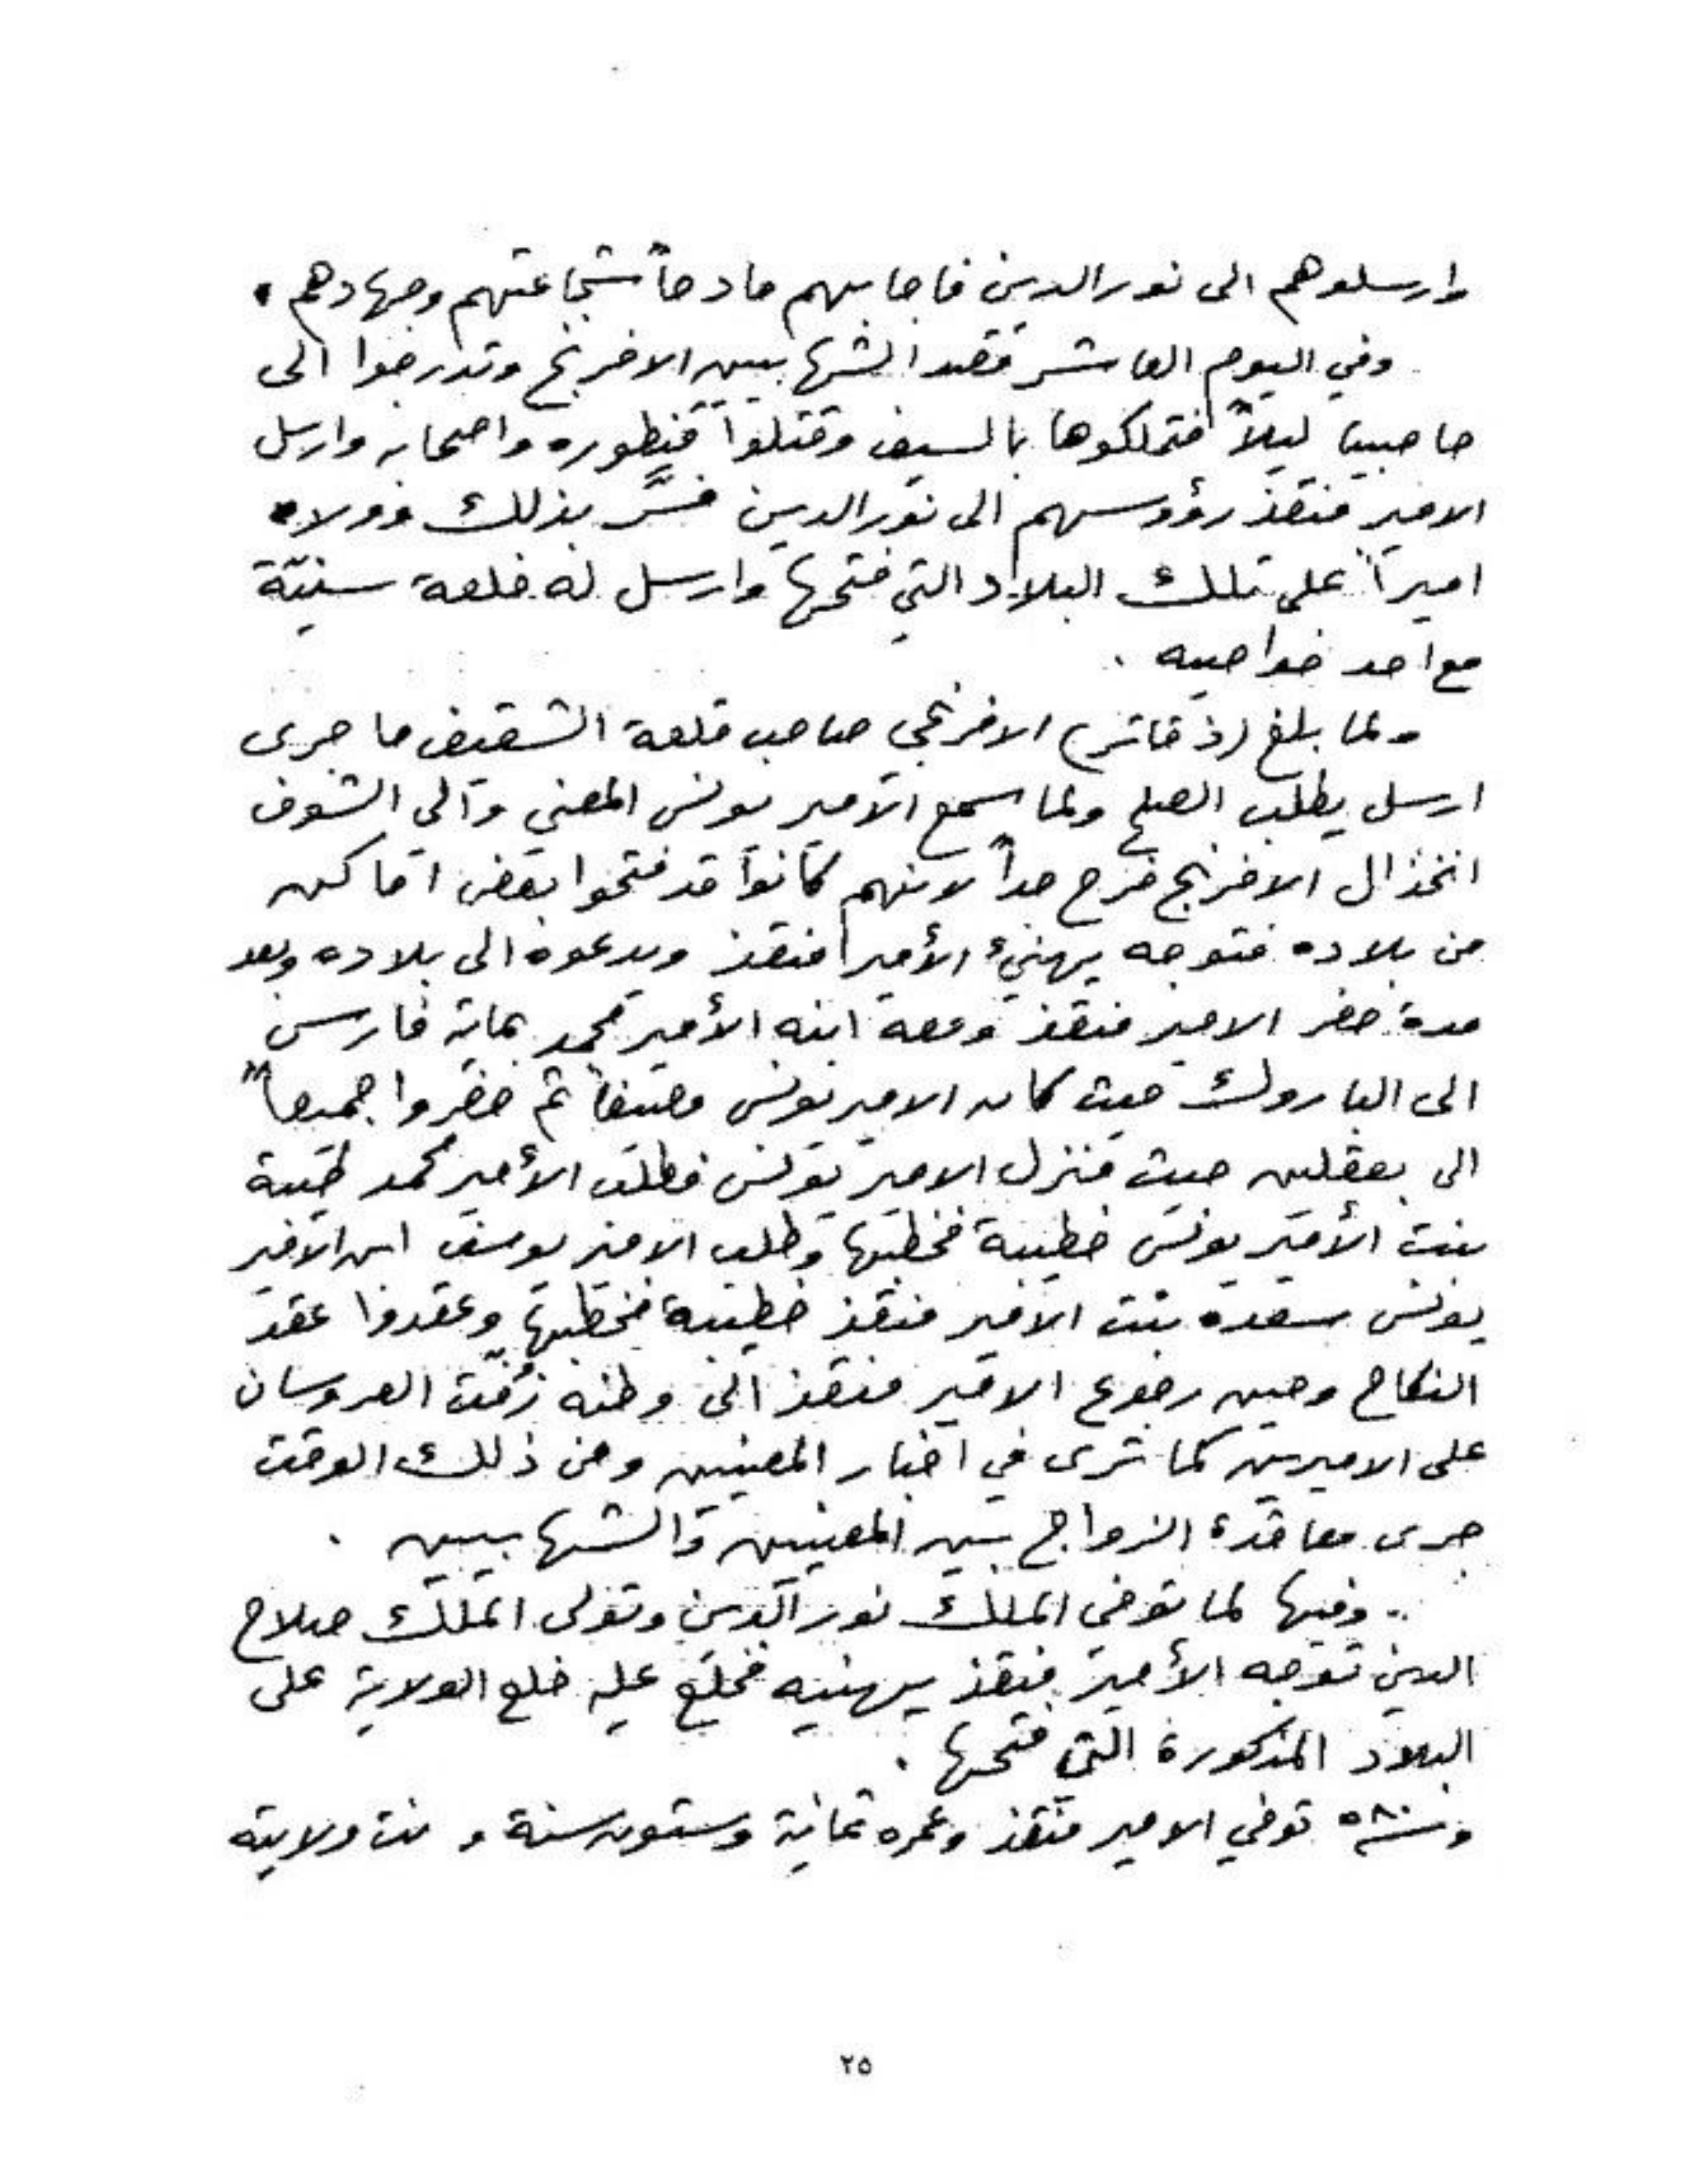 وارسلوهم الى نورالدين فاجابهم مادحاً شجاعتهم وجهادهم .
وفي اليوم العاشر قصد الشهابيين الافرنج وتدرجوا الى
حاصبيا ليلاً فتملكوها بالسيف وقتلوا قنطوره واصحابه وارسل
الامير منقذ رؤوسهم الى نورالدين فسُرَّ بذلك وولاه
اميراً على تلك البلاد التي فتحها وارسل له خلعة سنيّة
مع احد خواصيه .
ولما بلغ (ذ قاتر) الافرنجي صاحب قلعة الشقيف ما جرى
ارسل يطلب الصلح ولما سمع الامير يونس المعني والي الشوف
انخذال الافرنج فرح جداً لانهم كانوا قد فتحوا بعض اماكن
من بلاده فتوجه يهنئ الأمير منقذ ويدعوه الى بلاده وبعد
مدة حضر الامير منقذ ومعه ابنه الأمير محمد بماية فارس
الى الباروك حيث كان الامير يونس مصيفاً ثم حضروا جميعاً
الى بعقلين حيث منزل الامير يونس فطلب الأمير محمد طيبة
بنت الأمير يونس خطيبة فخطبها وطلب الامير يوسف ابن الامير
يونس سعدة بنت الامير منقذ خطيبة فخطبها وعقدوا عقد
النكاح وحين رجوع الامير منقذ الى وطنه زُفّت العروسان
على الاميرين كما ترى في اخبار المعنيين ومن ذلك الوقت
جرى معاقدة الزواج بين المعنيين والشهابيين .
وفيها لما توفي الملك نورالدين وتولى الملك صلاح
الدين توجه الأمير منقذ يهنيه فخلع عليه خلع الولاية على
البلاد المذكورة التي فتحها .
وسنة ٥٨٠ توفي الامير منقذ وعمره ثمانية وستون سنة و نت ولايته
٢٥